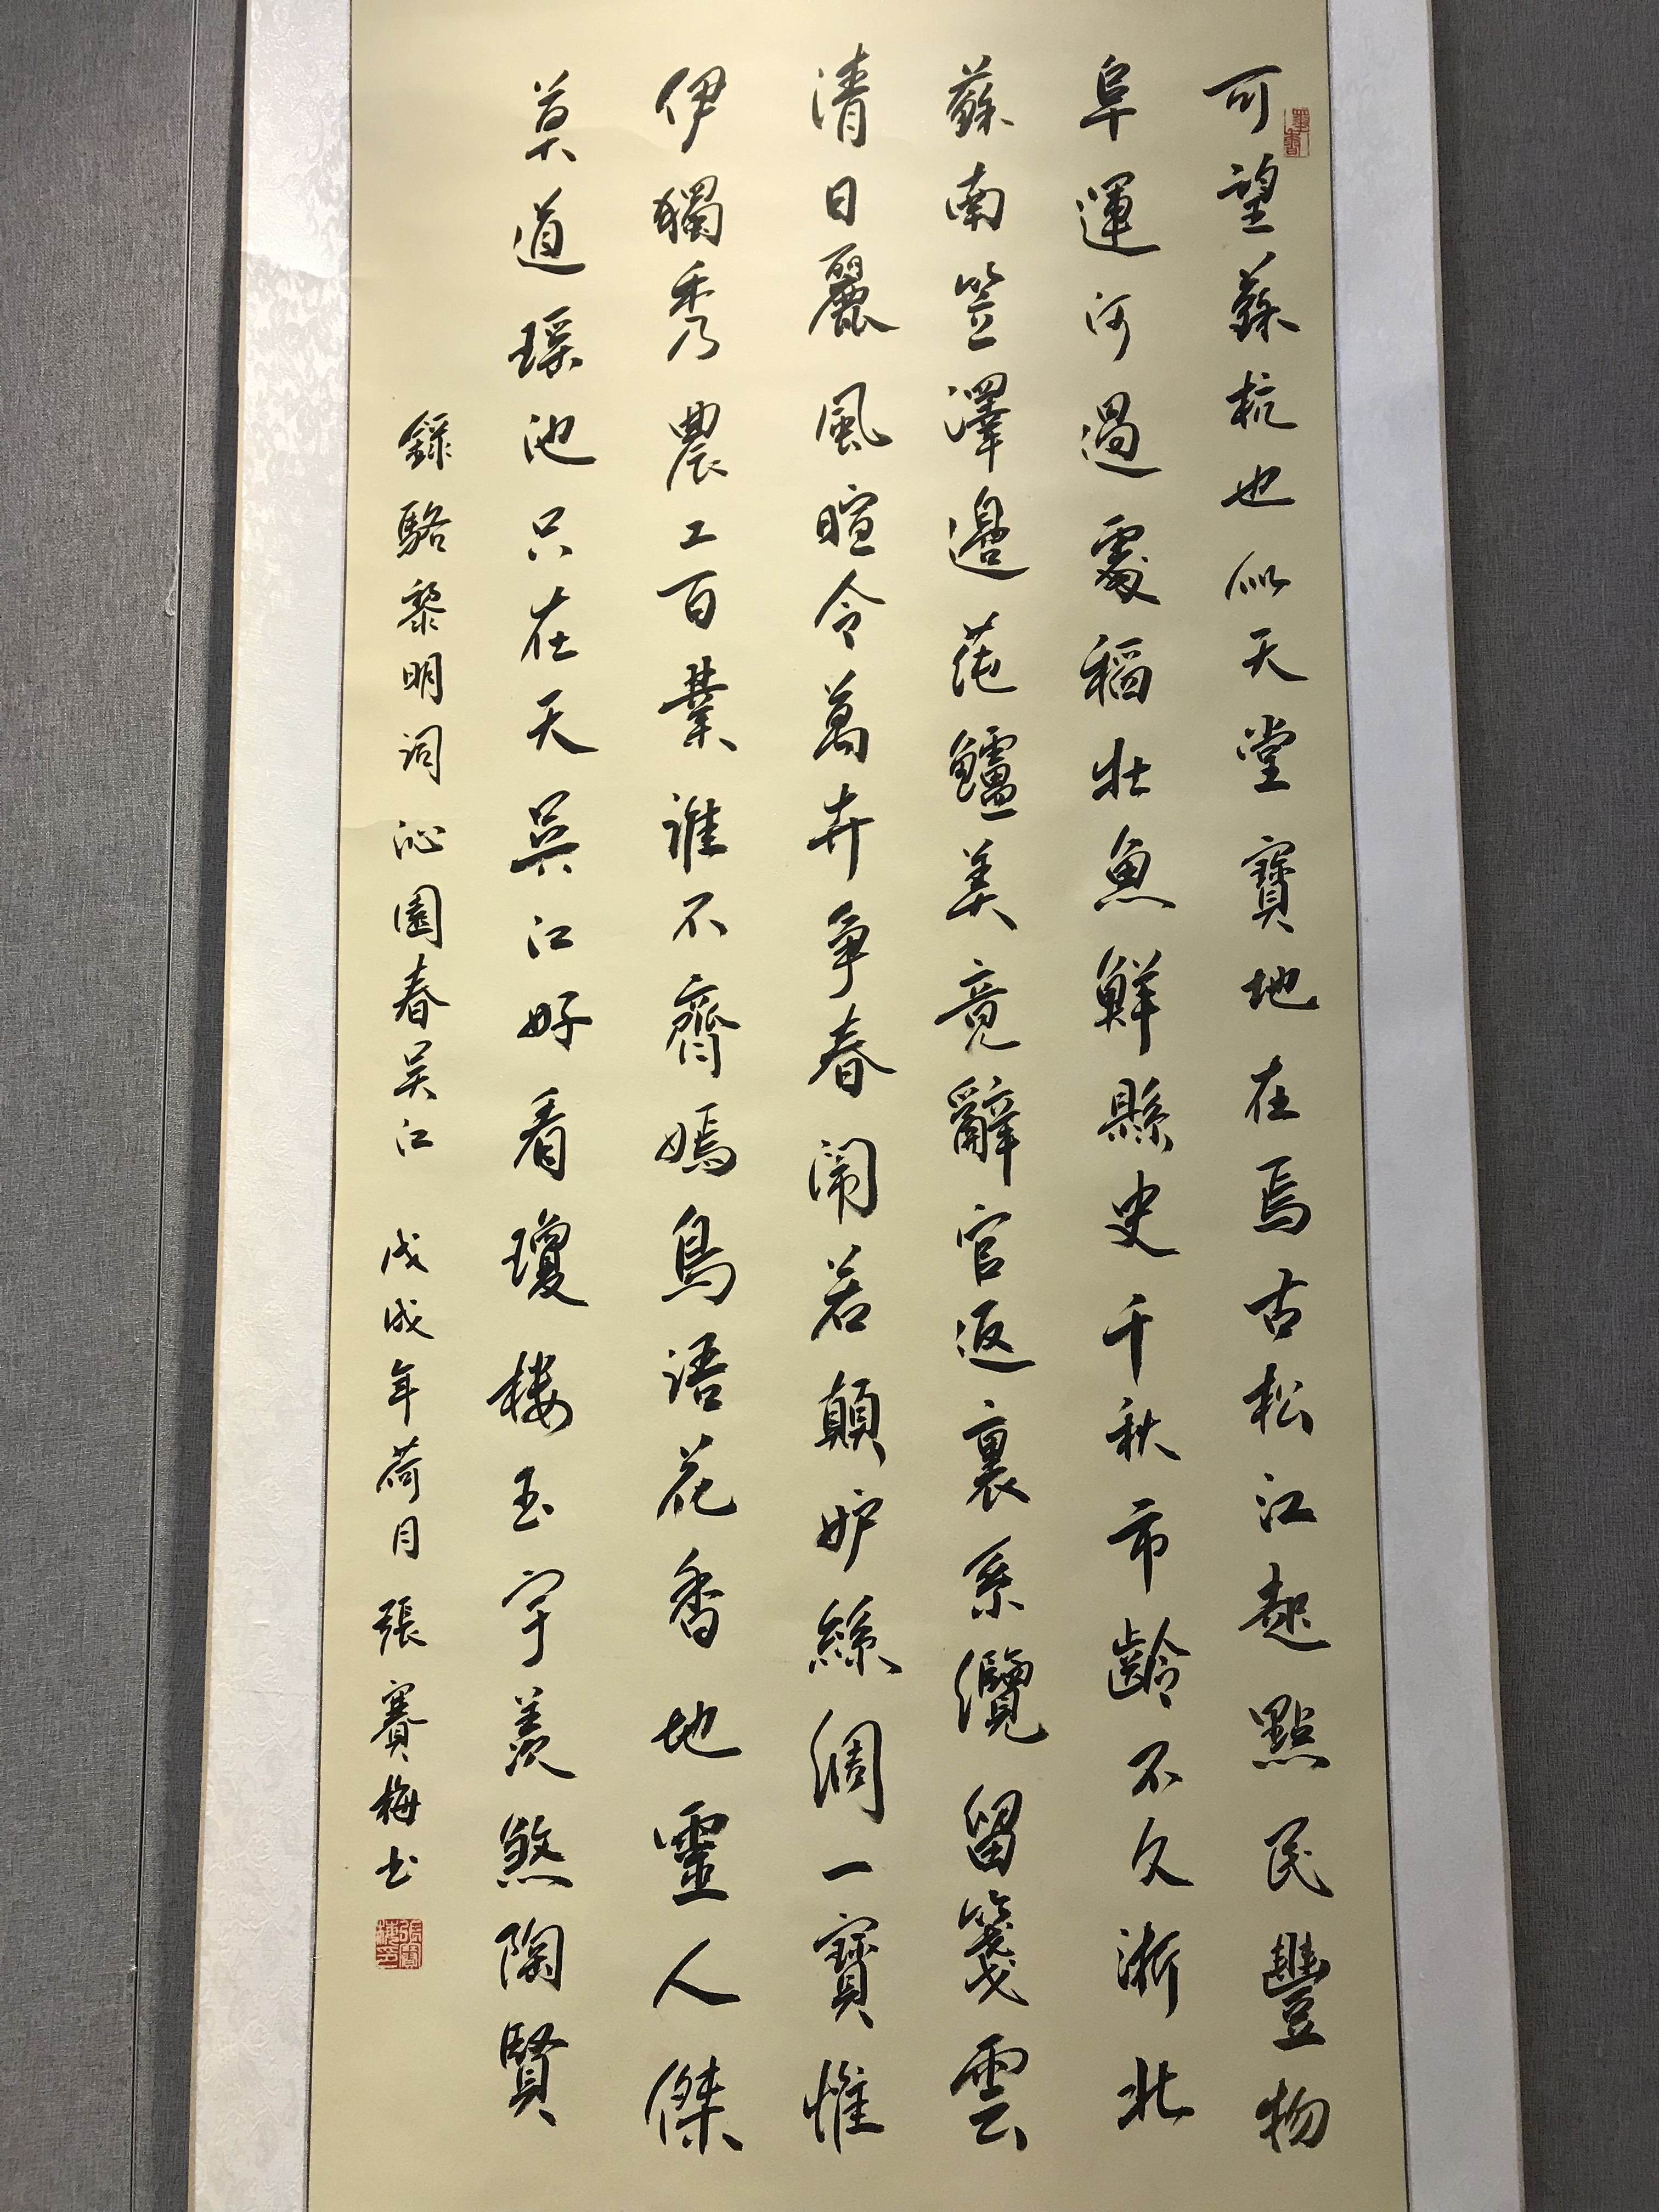 可望蘇杭也似天堂寶地在焉古松江起點民豐物
阜運河過處稻壯魚鮮縣史千秋市齡不久浙北
蘇南笠澤邊莼鱸美竟辭官返裏系纜留箋雲
清日麗風暄令萬卉争春鬧若顛妒絲綢一寶惟
伊獨秀農工百業誰不齊嫣鳥语花香地靈人傑
莫道瑶池只在天吴江好看瓊楼玉宇羡煞陶賢
錄駱黎明词沁園春吴江 戊戌年荷月張賽梅书
張賽梅印